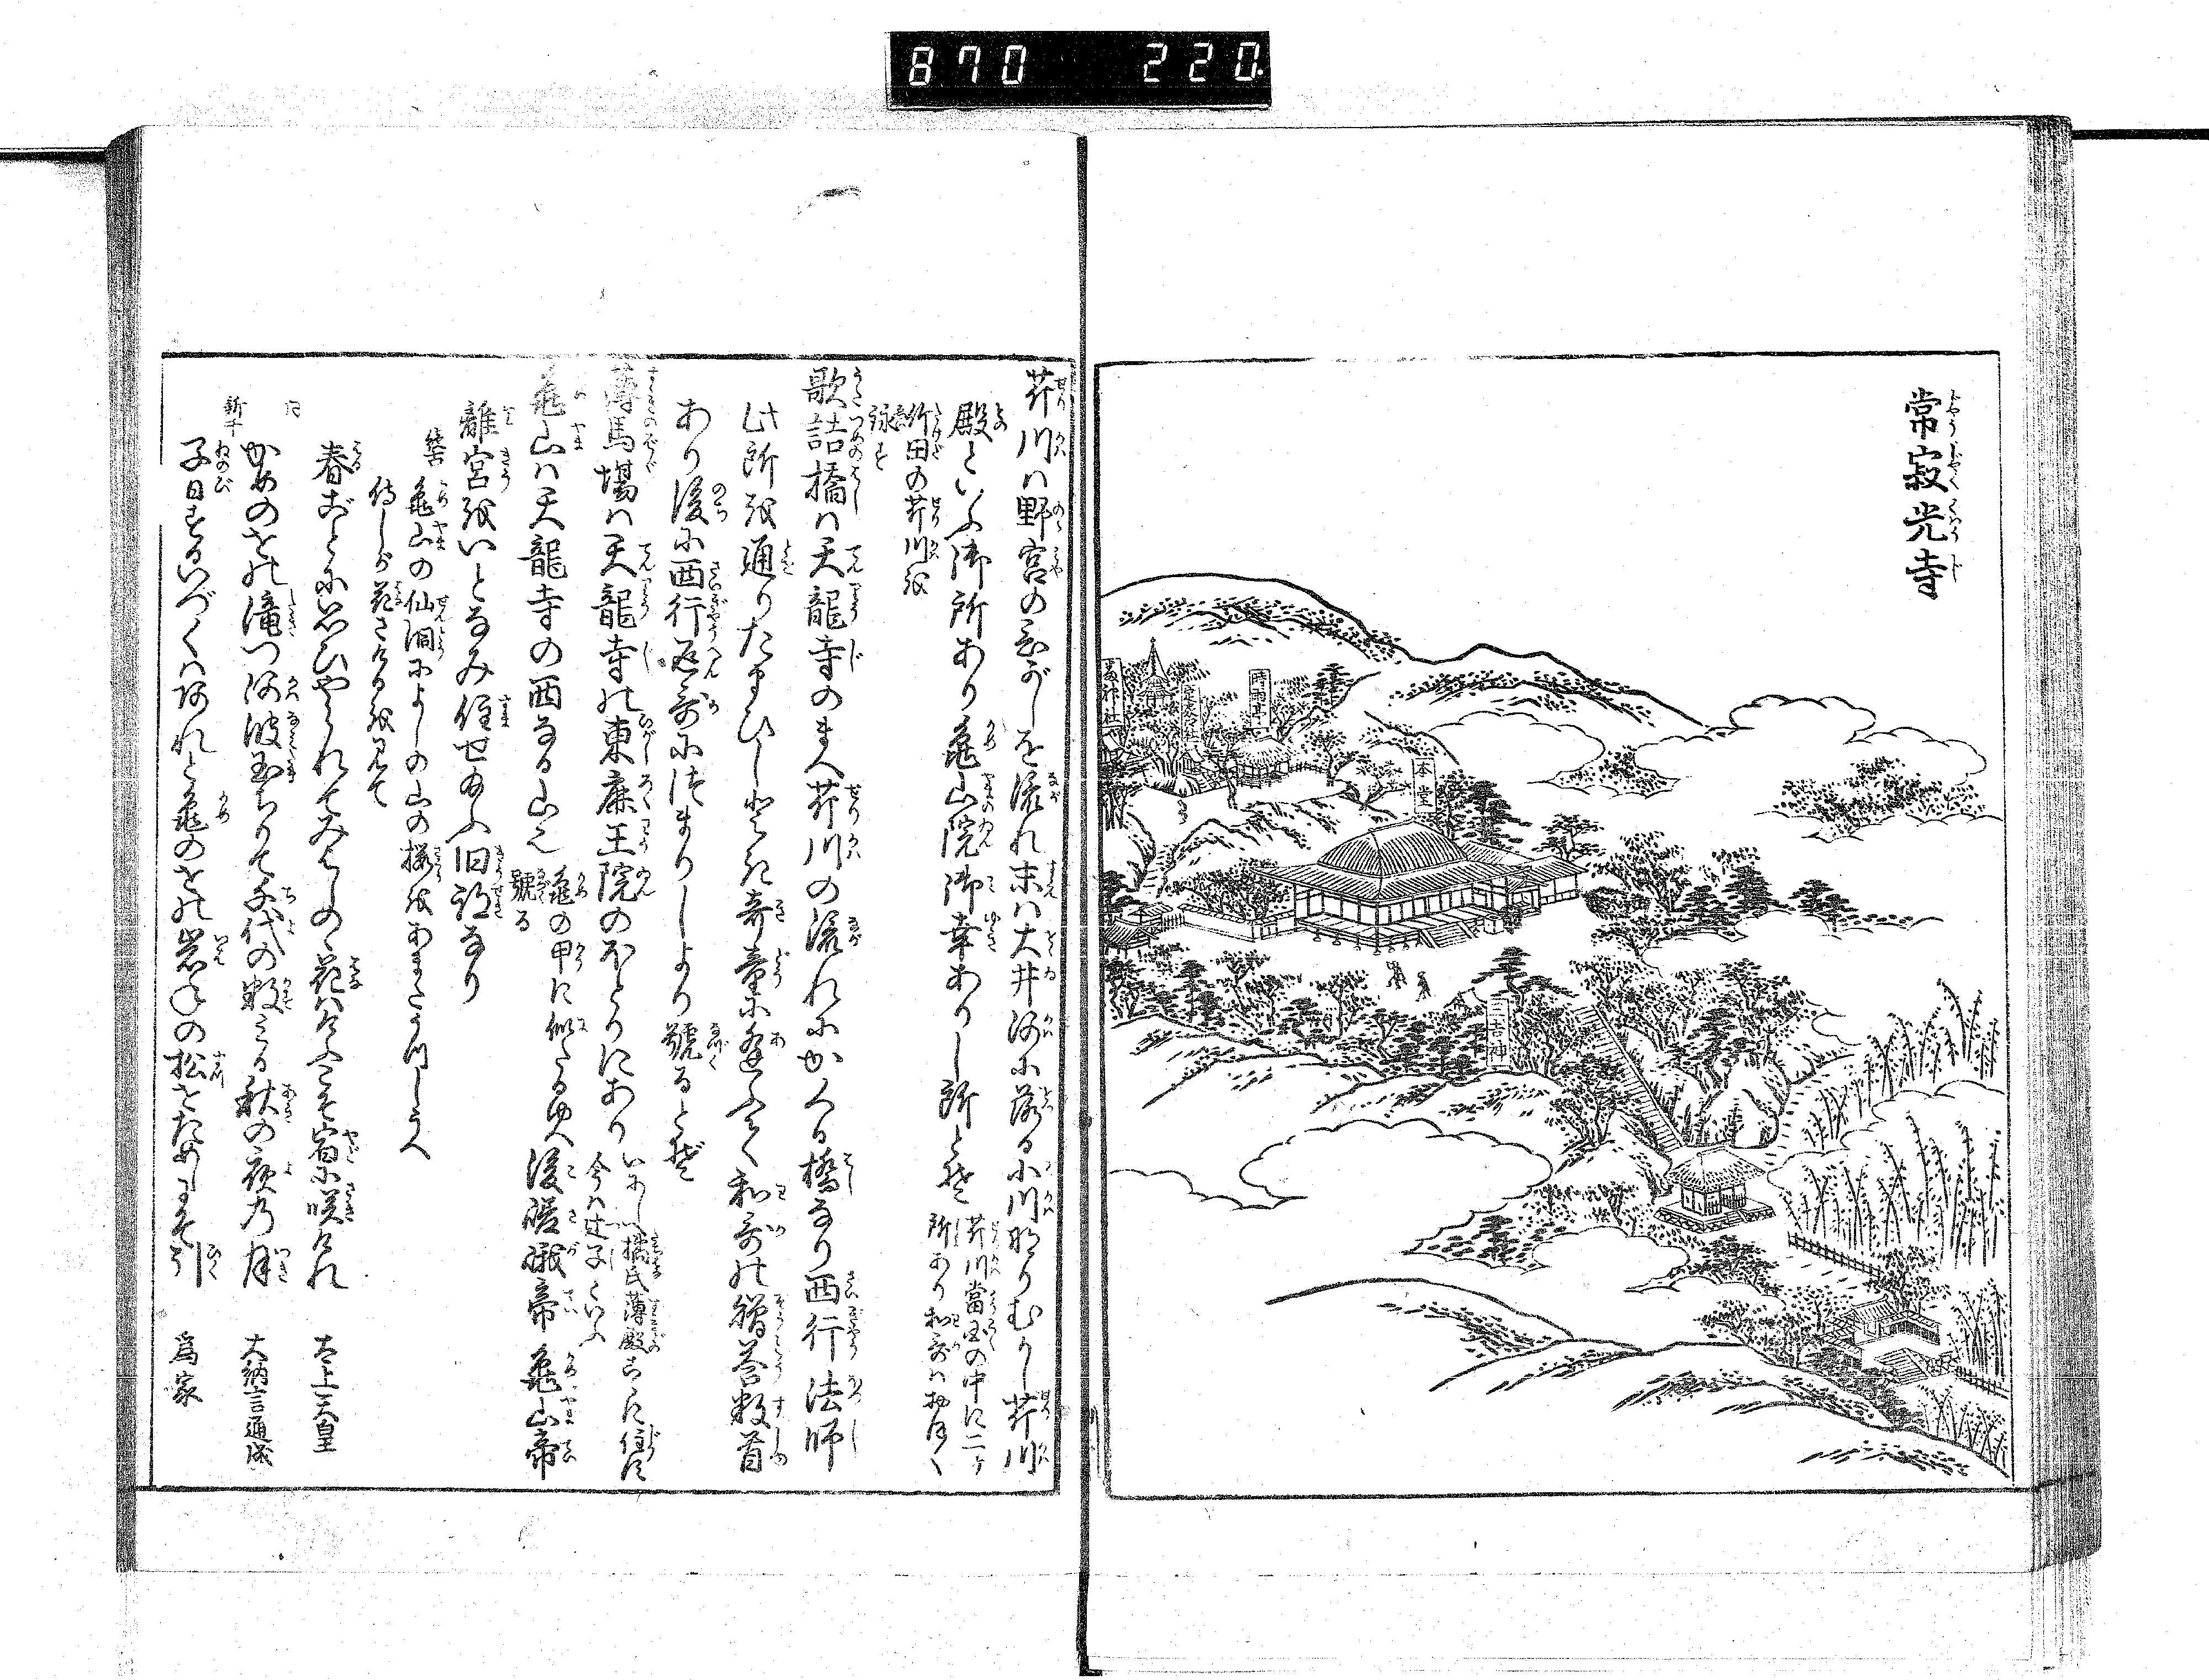 870 220.
常寂光寺
時雨亭
本堂
芹川ハ野宮のひがしを流れ末ハ大井河に落る小川なりむかし芹川
殿といふ御所あり亀山院御幸ありし所とぞ
芹川當国の中に二ヶ
所あり和哥ハおほく
竹田の芹川を
詠ず
歌詰橋ハ天龍寺のまへ芹川の流れにかくる橋なり西行法師
此所を通りたまひしとき奇童に逢ふて和哥の贈答数首
あり後に西行返哥につまりしより號るとぞ
薄馬場ハ天龍寺の東鹿王院のほとりにあり
いにしへ橘氏薄殿こゝに住す
今ハ辻子といふ
亀山ハ天龍寺の西なる山也
亀の甲に似たるゆへ
號る
後嵯峨帝亀山帝
離宮をいとなみ住せ給ふ旧跡なり
亀山の仙洞によしの山の櫻をあまたうつしうへ
侍しが花さけるを見て
春ごとに思ひやられてみよしのゝ花ハけふこそ宿に咲けれ
太上天皇
同
かめのをの滝つ河波玉ちりて千代の数みる秋の夜乃月
大納言通成
新千
子日するいづくハあれど亀のをの岩ねの松をためしにぞ引
為家